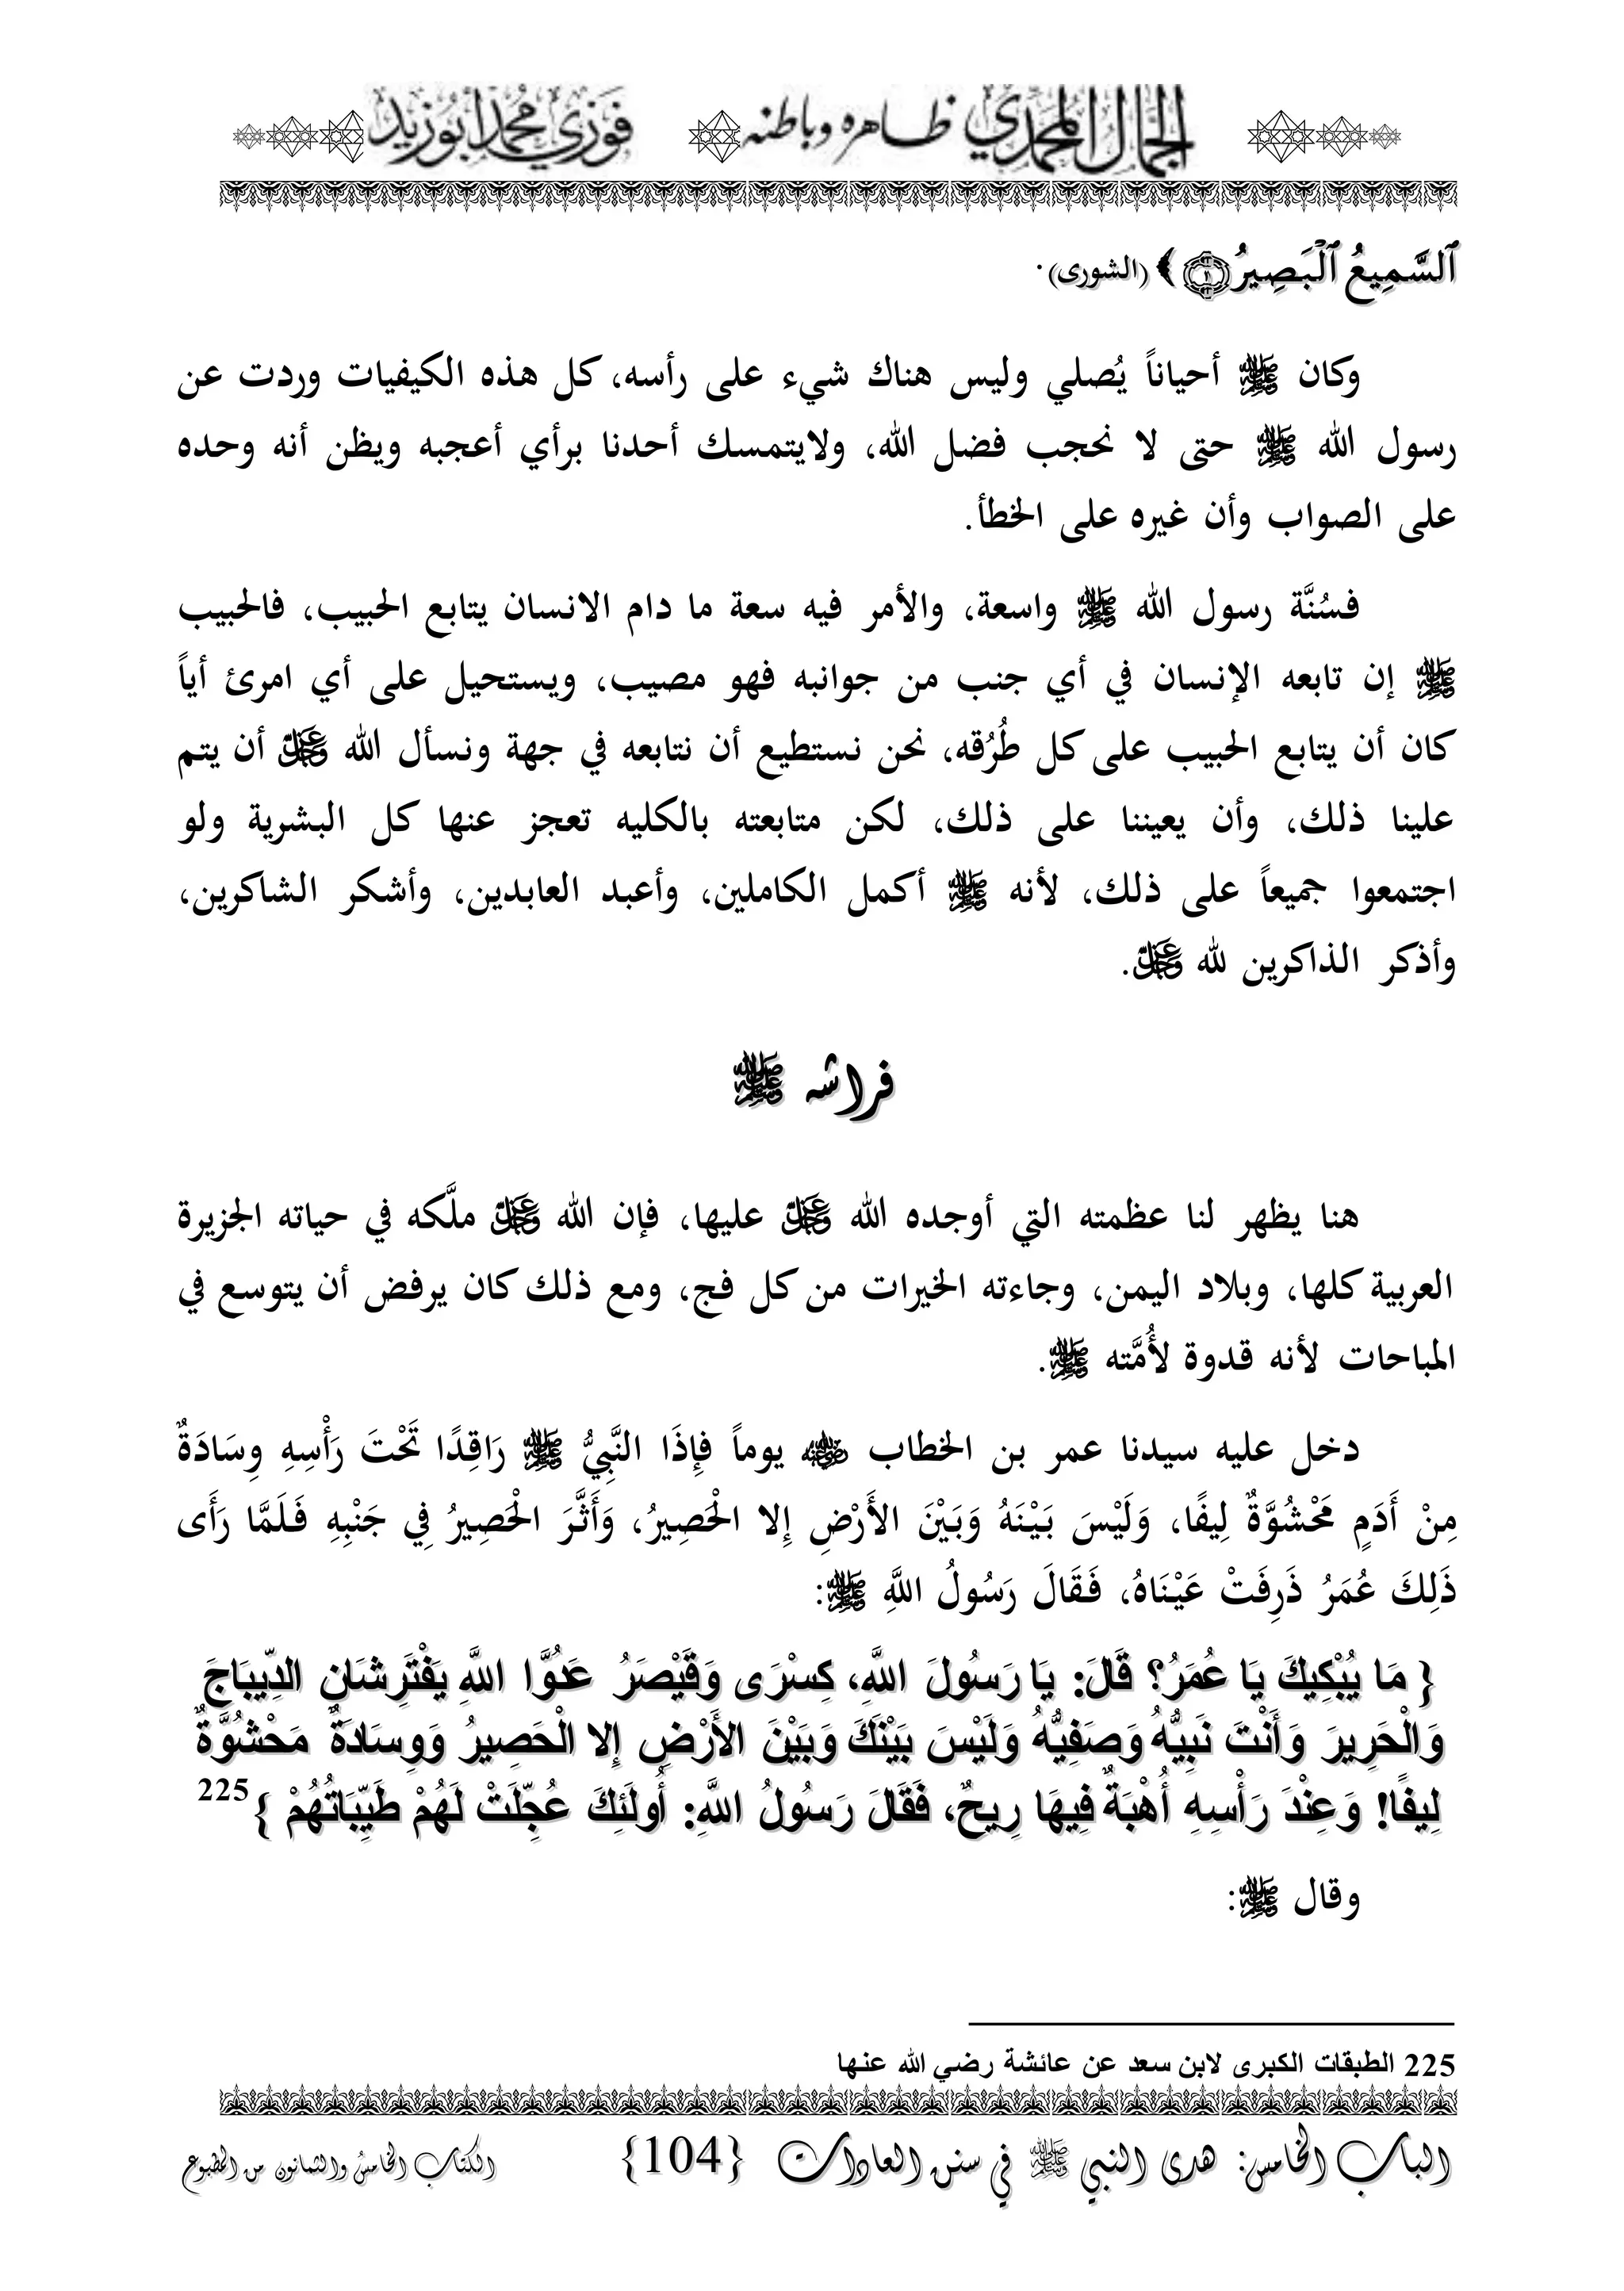 الجمال المحمدي ظاهره وباطنه فوزي محمد أبوزيد
ٱلسَّمِيعُ ٱلْبَصِيرُ ﴾ (الشورى).
وكان ﷺ أحياناً يُصلي وليس هناك شيء على رأسه، كل هذه الكيفيات وردت عن
رسول الله ﷺ حتى لا نحجب فضل الله، ولايتمسك أحدنا برأي أعجبه ويظن أنه وحده
على الصواب وأن غيره على الخطأ.
فسُنَّة رسول الله ﷺ واسعة، والأمر فيه سعة ما دام الانسان يتابع الحبيب، فالحبيب
ﷺ إن تابعه الإنسان في أي جنب من جوانبه فهو مصيب، ويستحيل على أي امرئ أياً
كان أن يتابع الحبيب على كل طُرُقه، نحن نستطيع أن نتابعه في جهة ونسأل الله عز وجل أن يتم
علينا ذلك، وأن يعيننا على ذلك، لكن متابعته بالكليه تعجز عنها كل البشرية ولو
اجتمعوا جميعاً على ذلك، لأنه ﷺ أكمل الكاملين، وأعبد العابدين، وأشكر الشاكرين،
وأذكر الذاكرين لله عز وجل.
فراشه ﷺ
هنا يظهر لنا عظمته التي أوجده الله عز وجل عليها، فإن الله عز وجل ملَّكه في حياته الجزيرة
العربية كلها، وبلاد اليمن، وجاءته الخيرات من كل فج، ومع ذلك كان يرفض أن يتوسع في
المباحات لأنه قدوة لأُمَّته ﷺ.
دخل عليه سيدنا عمر بن الخطاب رضي الله عنه يوماً فَإِذَا النَّبِيُّ ﷺ رَاقِدًا تَحْتَ رَأْسِهِ وِسَادَةٌ
مِنْ أَدَمٍ مَحْشُوَّةٌ لِيفًا، وَلَيْسَ بَيْنَهُ وَبَيْنَ الأَرْضِ إِلا الْحَصِيرُ، وَأَثَّرَ الْحَصِيرُ فِي جَنْبِهِ فَلَمَّا رَأَى
ذَلِكَ عُمَرُ ذَرِفَتْ عَيْنَاهُ، فَقَالَ رَسُولُ اللَّهِ ﷺ:
{ مَا يُبْكِيكَ يَا عُمَرُ؟ قَالَ: يَا رَسُولَ اللَّهِ، كِسْرَى وَقَيْصَرُ عَدُوَّا اللَّهِ يَفْتَرِشَانِ الدِّيبَاجَ
وَالْحَرِيرَ وَأَنْتَ نَبِيُّهُ وَصَفِيُّهُ وَلَيْسَ بَيْنَكَ وَبَيْنَ الأَرْضِ إِلا الْحَصِيرُ وَوِسَادَةٌ مَحْشُوَّةٌ
لِيفًا! وَعِنْدَ رَأْسِهِ أُهْبَةٌ فِيهَا رِيحٌ، فَقَالَ رَسُولُ اللَّهِ: أُولَئِكَ عُجِّلَتْ لَهُمْ طَيِّبَاتُهُمْ } 225
وقال ﷺ:
225 الطبقات الكبرى لابن سعد عن عائشة رضي الله عنها
الباب الخامس: هدى النبي ﷺ في سنن العادات {104} الكتاب الخامس والثمانون من المطبوع